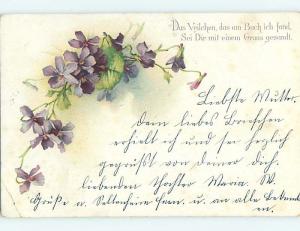 Das Veilchen, das am Bach ich fand,
Sei Dir mit einem Gruss gesandt.
Liebste Mutter.
Dein liebes Briefchen
erhielt ich und sei herzlich
gegrüßt von deiner dich
liebenden Tochter Maria. W.
Grüße a. u. an alle Bekannt
en.